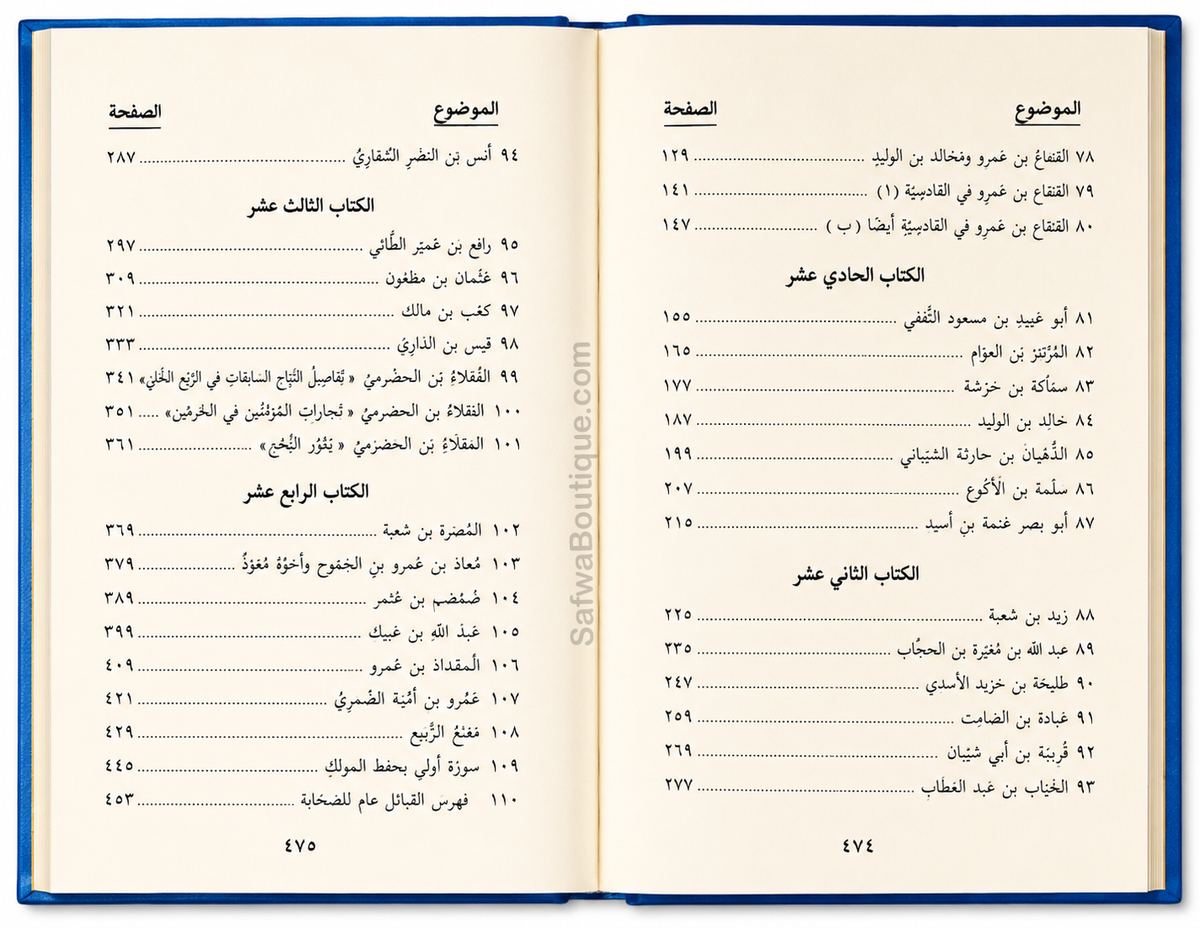 الموضوع الصفحة
٧٨ القنفاعُ بن عَمرو ومَخالد بن الوليدِ ١٢٩
٧٩ القنقاع بن عَمرِو في القادسِيّة (١) ١٤١
٨٠ القنقاع بن عَمرِو في القادسِيّةِ أيضًا ( ب ) ١٤٧
الكتاب الحادي عشر
٨١ أبو عَبيدِ بن مسعود الثَّففي ١٥٥
٨٢ المُرَّتنز بَن العوّام ١٦٥
٨٣ سمَاكة بن خرَشة ١٧٧
٨٤ خالِد بن الوليد ١٨٧
٨٥ الذُّهْيانْ بن حارثة الشيَباني ١٩٩
٨٦ سلّمة بن الْأكُوع ٢٠٧
٨٧ أبو بصر غنمة بنِ أسيد ٢١٥
الكتاب الثاني عشر
٨٨ زيد بن شعبة ٢٢٥
٨٩ عبد الله بن مُغيَرة بن الحجَّاب ٢٣٥
٩٠ طليحَة بن خزيد الأسدي ٢٤٧
٩١ عَبادة بن الضامِت ٢٥٩
٩٢ قُرِيبّة بن أبي شيْبان ٢٦٩
٩٣ الخيَاب بن عَبد العَطَابِ ٢٧٧
٤٧٤
الموضوع الصفحة
٩٤ أنس بَن النضْرِ الشَّقارِيُ ٢٨٧
الكتاب الثالث عشر
٩٥ رافع بَن عْميّر الطَّائي ٢٩٧
٩٦ عَثّمان بن مظعُون ٣٠٩
٩٧ كعْب بن مالك ٣٢١
٩٨ قيس بن الذارِيُ ٣٣٣
٩٩ الفُقلاءُِ بَن الحضْرميُ « تّقاصِيلُ النّبَّاج السَابقاتِ في الرَّبْع الخَّليْ» ٣٤١
١٠٠ الفقلاءُ بن الحضرميُ « تَجاراتِ المُوْمُنُين في الخَرمُين» ٣٥١
١٠١ المَقلَاءِ بَن الحَضرْميُ « يَثُوُر النُّحْجْ» ٣٦١
الكتاب الرابع عشر
١٠٢ المُصَرة بن شعبة ٣٦٩
١٠٣ مُعاذ بن عُمرو بنِ الجَمْوح وأخوُهْ مُعَوْذُ ٣٧٩
١٠٤ ضُمْضم بن عُثمر ٣٨٩
١٠٥ عَبذَ اللّهِ بن عَبيك ٣٩٩
١٠٦ الْمقداذ بن عُمرو ٤٠٩
١٠٧ عَمُرو بن أمُيَة الضْمرِيُ ٤٢١
١٠٨ مَعْنْعُ الرَّبَيع ٤٢٩
١٠٩ سورَة أولي بحفط المولكِ ٤٤٥
١١٠ فهرسَ القبائل عام للصَحَابة ٤٥٣
٤٧٥
SafwaBoutique.com